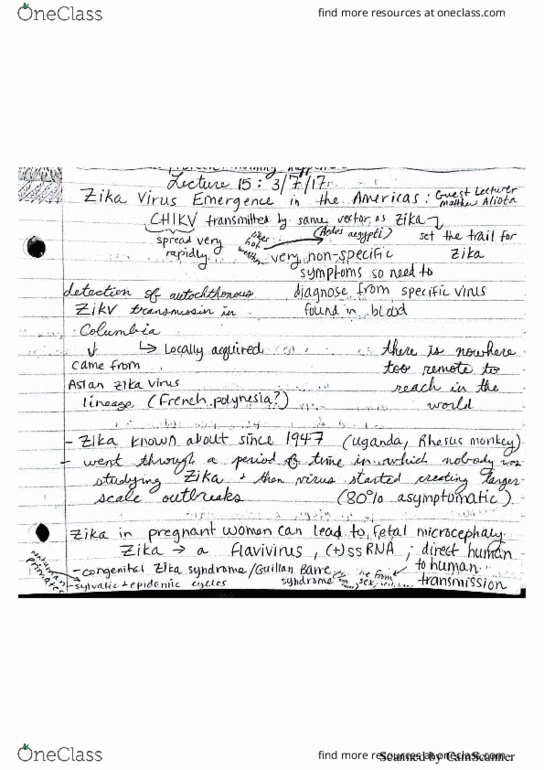 OneClass
find more resources at oneclass.com
Lecture 15: 3/7/17
Zika Virus Emergence in the Americas: Guest Lecturer
Matthew Aliota
CHIKV transmitted by same vector as Zika
(Aedes aegypti)
spread very
rapidly
likes
hot
weather
set the trail for
Zika
very non-specific
symptoms so need to
diagnose from specific virus
found in blood
detection of autochthonous
ZIKV transmission in
Columbia
↳ Locally acquired
came from
Asian Zika virus
lineage (French polynesia?)
there is nowhere
too remote to
reach in the
world
- Zika known about since 1947 (Uganda, Rhesus monkey)
- went through a period of time in which nobody was
studying Zika + then virus started creating larger
scale outbreaks (80% asymptomatic)
Zika in pregnant women can lead to fetal microcephaly
Zika → a flavivirus, (+)ssRNA ; direct human
to human
transmission
- congenital Zika syndrome/Guillan Barre
syndrome
nonhuman
primates
- sylvatic + epidemic cycles
OneClass
find more resources at oneclass.com
Scanned by CamScanner